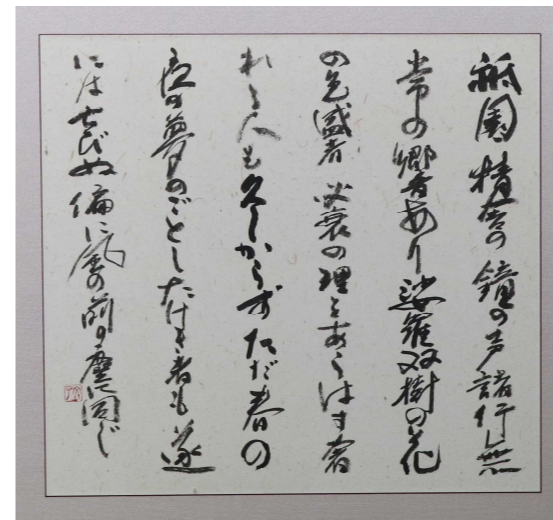 祇園精舎の鐘の声諸行無
常の響あり娑羅双樹の花
の色盛者必衰の理をあらはす奢
れる人も久しからずただ春の
夜の夢のごとしたけき者も遂
にはほろびぬ偏に風の前の塵に同じ